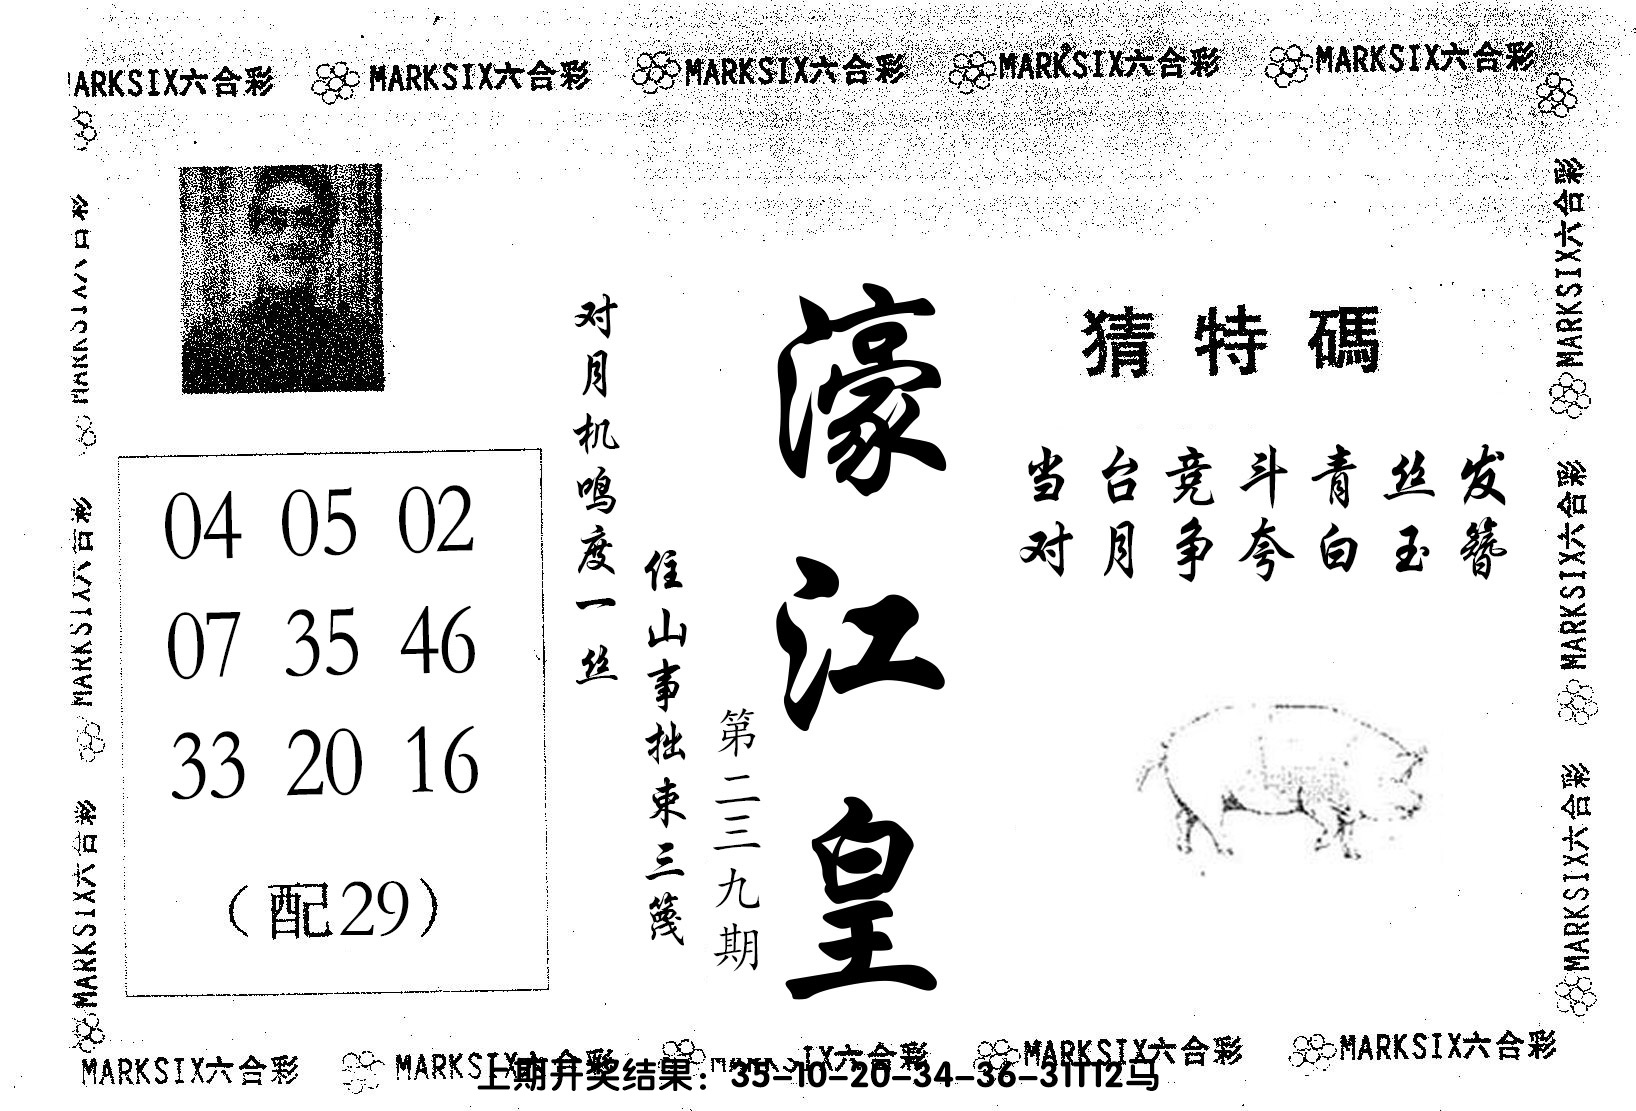 MARKSIX六合彩 MARKSIX六合彩 MARKSIX六合彩 MARKSIX六合彩 MARKSIX六合彩
濠江皇
第二三九期
猜特碼
当台竞斗青丝发
对月争夸白玉簪
对月机鸣度一丝
住山事拙束三篾
04 05 02
07 35 46
33 20 16
（配29）
MARKSIX六合彩
MARKSIX六合彩
MARKSIX六合彩
MARKSIX六合彩
MARKSIX六合彩
MARKSIX六合彩
MARKSIX六合彩 MARKSIX六合彩 MARKSIX六合彩 MARKSIX六合彩
上期开奖结果：35-10-20-34-36-31T12马